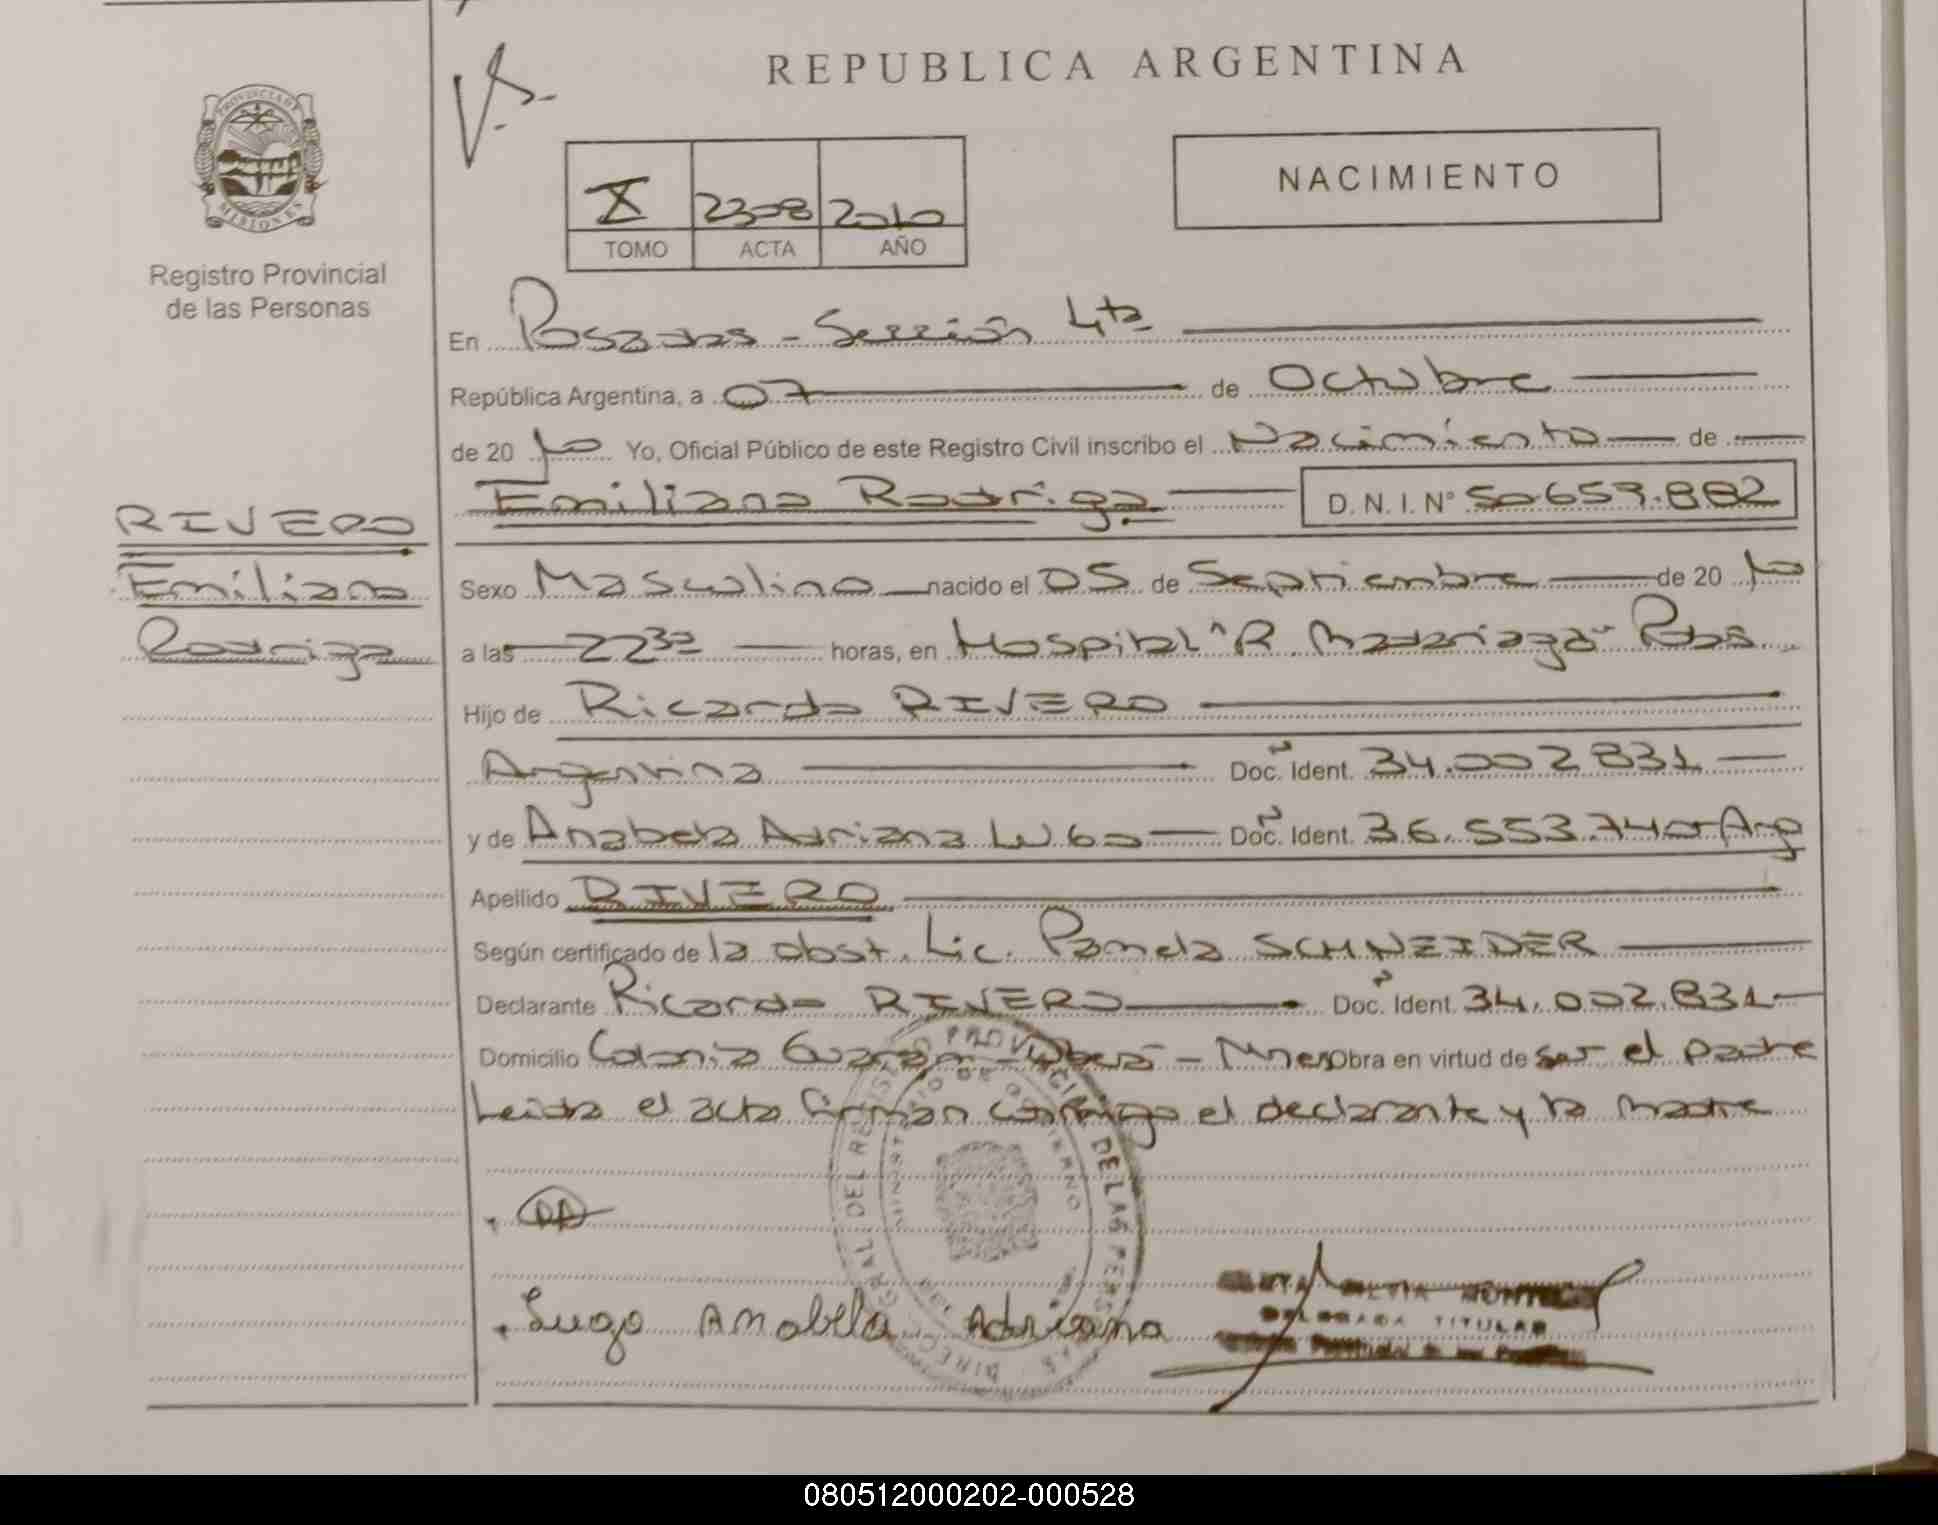 REPUBLICA ARGENTINA
PROVINCIA DE MISIONES
NACIMIENTO
X 2308 2010
TOMO ACTA AÑO
Registro Provincial
de las Personas
En Posadas - Sección 4ta
República Argentina, a 07 de Octubre
de 20 10 Yo, Oficial Público de este Registro Civil inscribo el Nacimiento de
Emiliano Rodrigo D. N. I. N° 50.659.882
RIVERO
Emiliano
Rodrigo
Sexo Masculino nacido el 05 de Septiembre de 20 10
a las 22 30 horas, en Hospital "R. Madariaga" Pdas
Hijo de Ricardo RIVERO
Argentino Doc. Ident. 34.002.831
y de Anabela Adriana Lugo Doc. Ident. 36.553.740 Arg
Apellido RIVERO
Según certificado de la obst. Lic. Pamela SCHNEIDER
Declarante Ricardo RIVERO Doc. Ident. 34.002.831
Domicilio Colonia Guaraní - Mnes obra en virtud de ser el padre
Leida el acta firman conmigo el declarante y la madre
Lugo Anabela Adriana
DELEGADA TITULAR
080512000202-000528